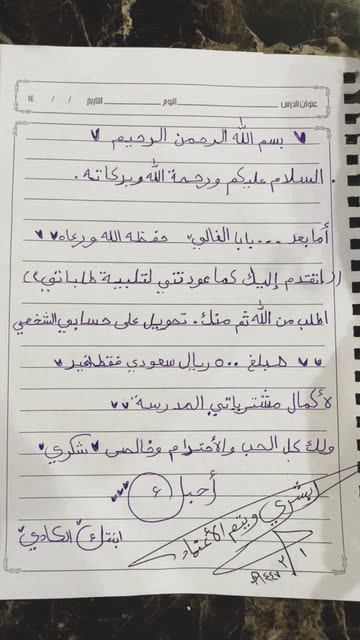 عنوان الدرس اليوم التاريخ / / ١٤
بسم الله الرحمن الرحيم
السلام عليكم ورحمة الله وبركاته.
أما بعد ... بابا الغالي حفظه الله ورعاه
((اتقدم إليك كما عودتني لتلبية طلباتي))
اطلب من الله ثم منك. تحويل على حسابي الشخصي
مبلغ ٥٠٠ ريال سعودي فقط لاغير
لأكمال مشترياتي المدرسة
ولك كل الحب والأحترام وخالص شكري
أحبك
ابشري ويتم الأعتماد
ابنتك